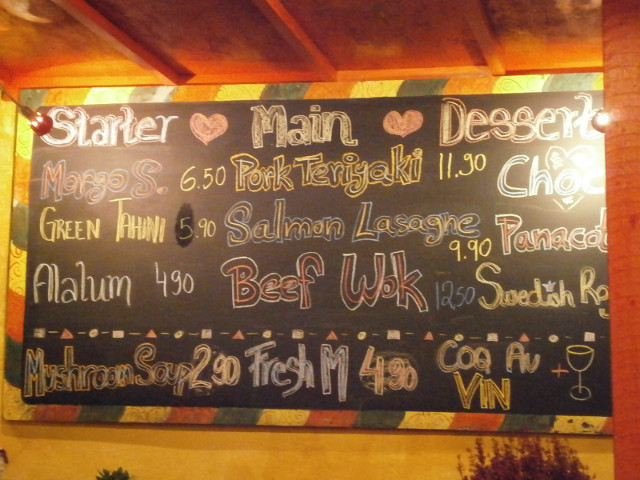 Starter Main Dessert
Margo S. 6.50 Pork Teriyaki 11.90 Choc
Green Tahini 5.90 Salmon Lasagne 9.90 Panacot
Alatum 4.90 Beef Wok 12.50 Swedish Ro
Mushroom Soup 2.90 Fresh M 4.90 Coq Au Vin +